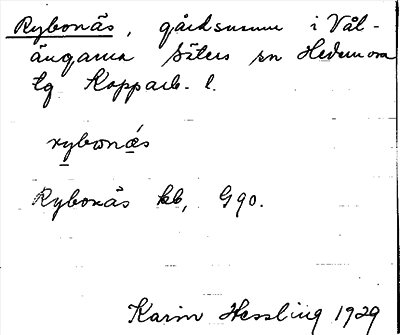 Rybonäs, gårdsnamn i Vål-
ängarna Säters sn Hedemora
tg Kopparb. l.
rybonä́s
Rybonäs kb, G90.
Karin Hessling 1929